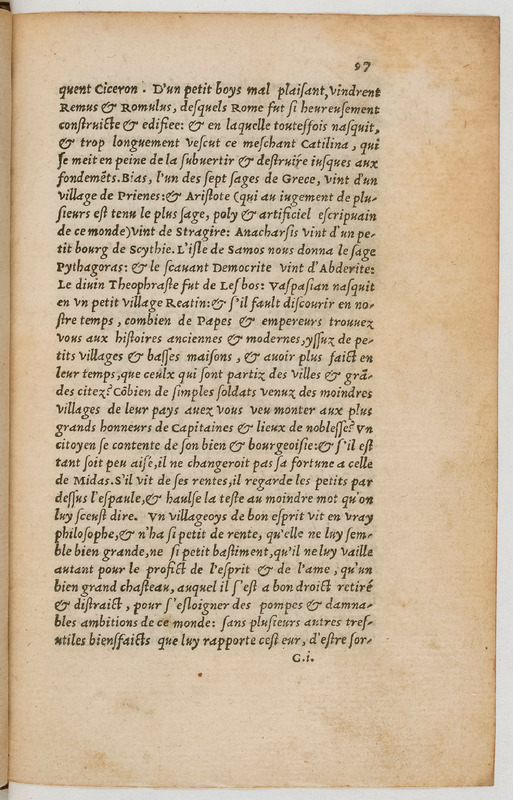 97
quent Ciceron . D'un petit boys mal plaisant, vindrent
Remus & Romulus, desquels Rome fut si heureusement
construicte & edifiee: & en laquelle toutesfois nasquit,
& trop longuement vescut ce meschant Catilina, qui
se meit en peine de la subuertir & destruire iusques aux
fondemẽts. Bias, l'un des sept sages de Grece, vint d'un
village de Prienes: & Aristote (qui au iugement de plu-
sieurs est tenu le plus sage, poly & artificiel escripuain
de ce monde) vint de Stragire: Anacharsis vint d'un pe-
tit bourg de Scythie. L'isle de Samos nous donna le sage
Pythagoras: & le scauant Democrite vint d'Abderite:
Le diuin Theophraste fut de Lesbos: Vaspasian nasquit
en vn petit village Reatin: & s'il fault discourir en no-
stre temps , combien de Papes & empereurs trouuez
vous aux histoires anciennes & modernes, yssuz de pe-
tits villages & basses maisons , & auoir plus faict en
leur temps, que ceulx qui sont partiz des villes & grã-
des citez? Cõbien de simples soldats venuz des moindres
villages de leur pays auez vous veu monter aux plus
grands honneurs de Capitaines & lieux de noblesse? Vn
citoyen se contente de son bien & bourgeoisie: & s'il est
tant soit peu aisé, il ne changeroit pas sa fortune a celle
de Midas. S'il vit de ses rentes, il regarde les petits par
dessus l'espaule, & haulse la teste au moindre mot qu'on
luy sceust dire. Vn villageoys de bon esprit vit en vray
philosophe, & n'ha si petit de rente, qu'elle ne luy sem-
ble bien grande, ne si petit bastiment, qu'il ne luy vaille
autant pour le profict de l'esprit & de l'ame , qu'un
bien grand chasteau, auquel il s'est a bon droict retiré
& distraict , pour s'esloigner des pompes & damna-
bles ambitions de ce monde: sans plusieurs autres tres-
utiles biensfaicts que luy rapporte cest eur, d'estre sor-
G.i.